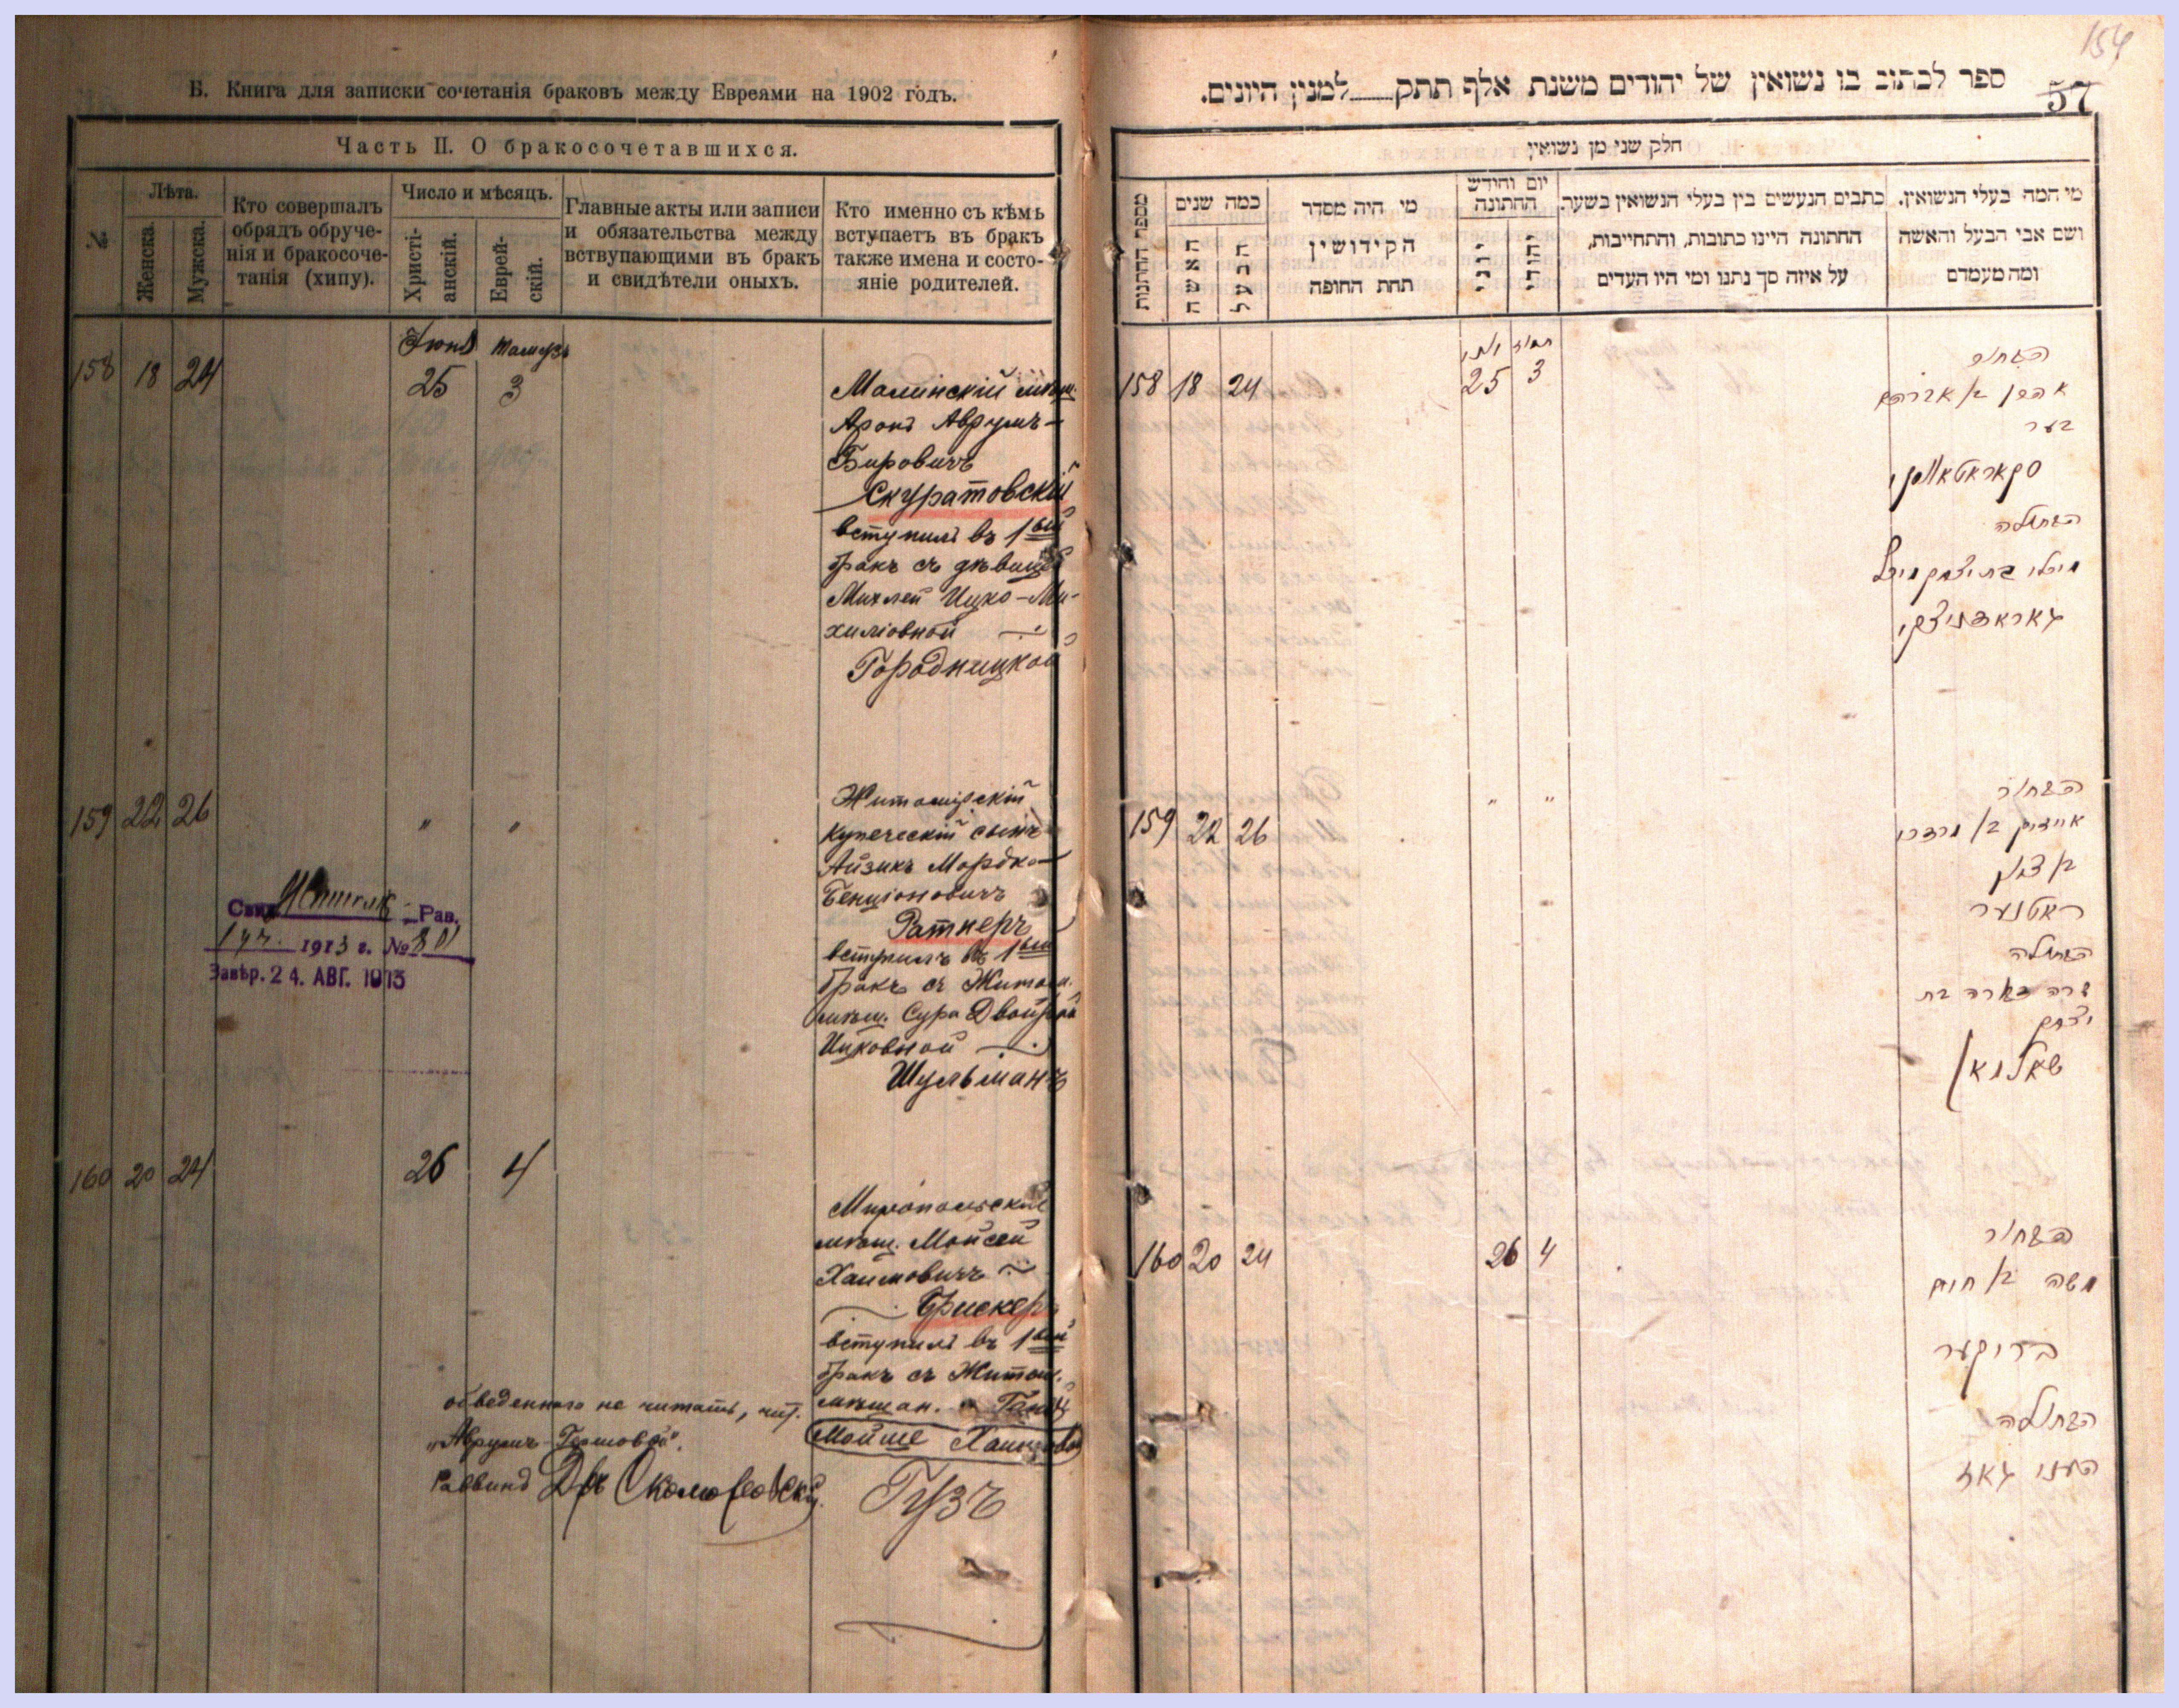 Б. Книга для записки сочетанія браковъ между Евреями на 1902 годъ.
Часть II. О бракосочетавшихся.
№
Лѣта.
Женска.
Мужска.
Кто совершалъ
обрядъ обруче-
нія и бракосоче-
танія (хипу).
Число и мѣсяцъ.
Христі-
анскій.
Еврей-
скій.
Главные акты или записи
и обязательства между
вступающими въ бракъ
и свидѣтели оныхъ.
Кто именно съ кѣмъ
вступаетъ въ бракъ
также имена и состо-
яніе родителей.
158 18 24
Іюнь
25
3
Аронъ Аврумъ-
Беровичъ
Скуратовскій
вступилъ въ 1ый
бракъ съ дѣвицей
Михлей Ицко-Ми-
хилiовной
Городницкой
159 22 26 " "
Житомірскій
купеческій сынъ
Айзикъ Мордко-
Бенціоновичъ
Ратнеръ
вступилъ въ 1ый
бракъ съ Житом.
мѣщ. Сура Двойрой
Ицковной
Шульманъ
Рав.
1913 г. №801
Завѣр. 24. АВГ. 1913
160 20 24 26 4
Миропольскій
мѣщ. Мойсей
Хаимовичъ
Брискеръ
вступилъ въ 1ый
бракъ съ Житом.
мѣщан.
Мойше
Гузъ
обведеннаго не читать, чит.
"Аврумъ
Раввинъ Д-ръ Скоморовскій
154
57
ספר לכתוב בו נשואין של יהודים משנת אלף תתק למנין היונים.
חלק שני מן נשואין
מספר החתונות
כמה שנים
האשה
הבעל
מי היה מסדר
הקידושין
תחת החופה
יום וחודש
החתונה
יוני
יהודי
כתבים הנעשים בין בעלי הנשואין בשער.
החתונה היינו כתובות, והתחייבות,
על איזה סך נתנו ומי היו העדים
מי המה בעלי הנשואין.
ושם אבי הבעל והאשה
ומה מעמדם
158 18 24
25
תמוז
3
הבחור
אהרן בן אברהם
בער
סקאראטאווסקי
הבתולה
מיכלי בת יצחק מיכל
גאראדניצקי
159 22 26 " "
הבחור
אייזיק בן מרדכי
בן ציון
ראטנער
הבתולה
שרה דבורה בת
יצחק
שאלמאן
160 20 24 26 4
הבחור
משה בן חיים
בריסקער
הבתולה
העני גאז